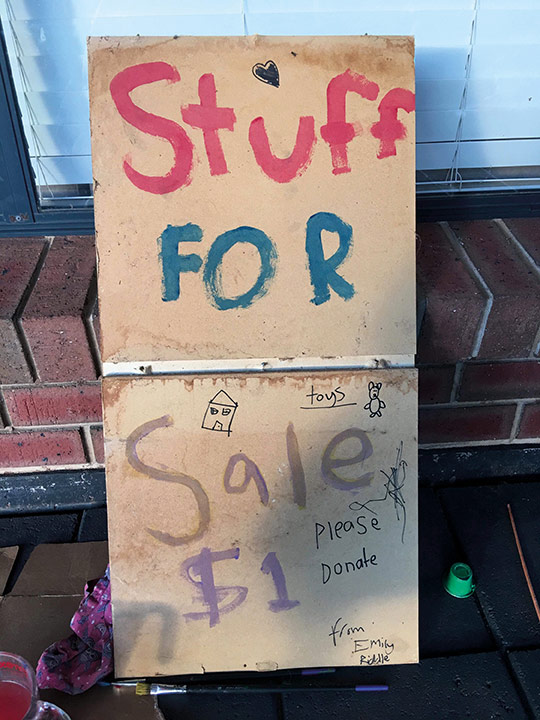 Stuff
FOR
toys
Sale
Please
$1
Donate
from
Emily
Riddle